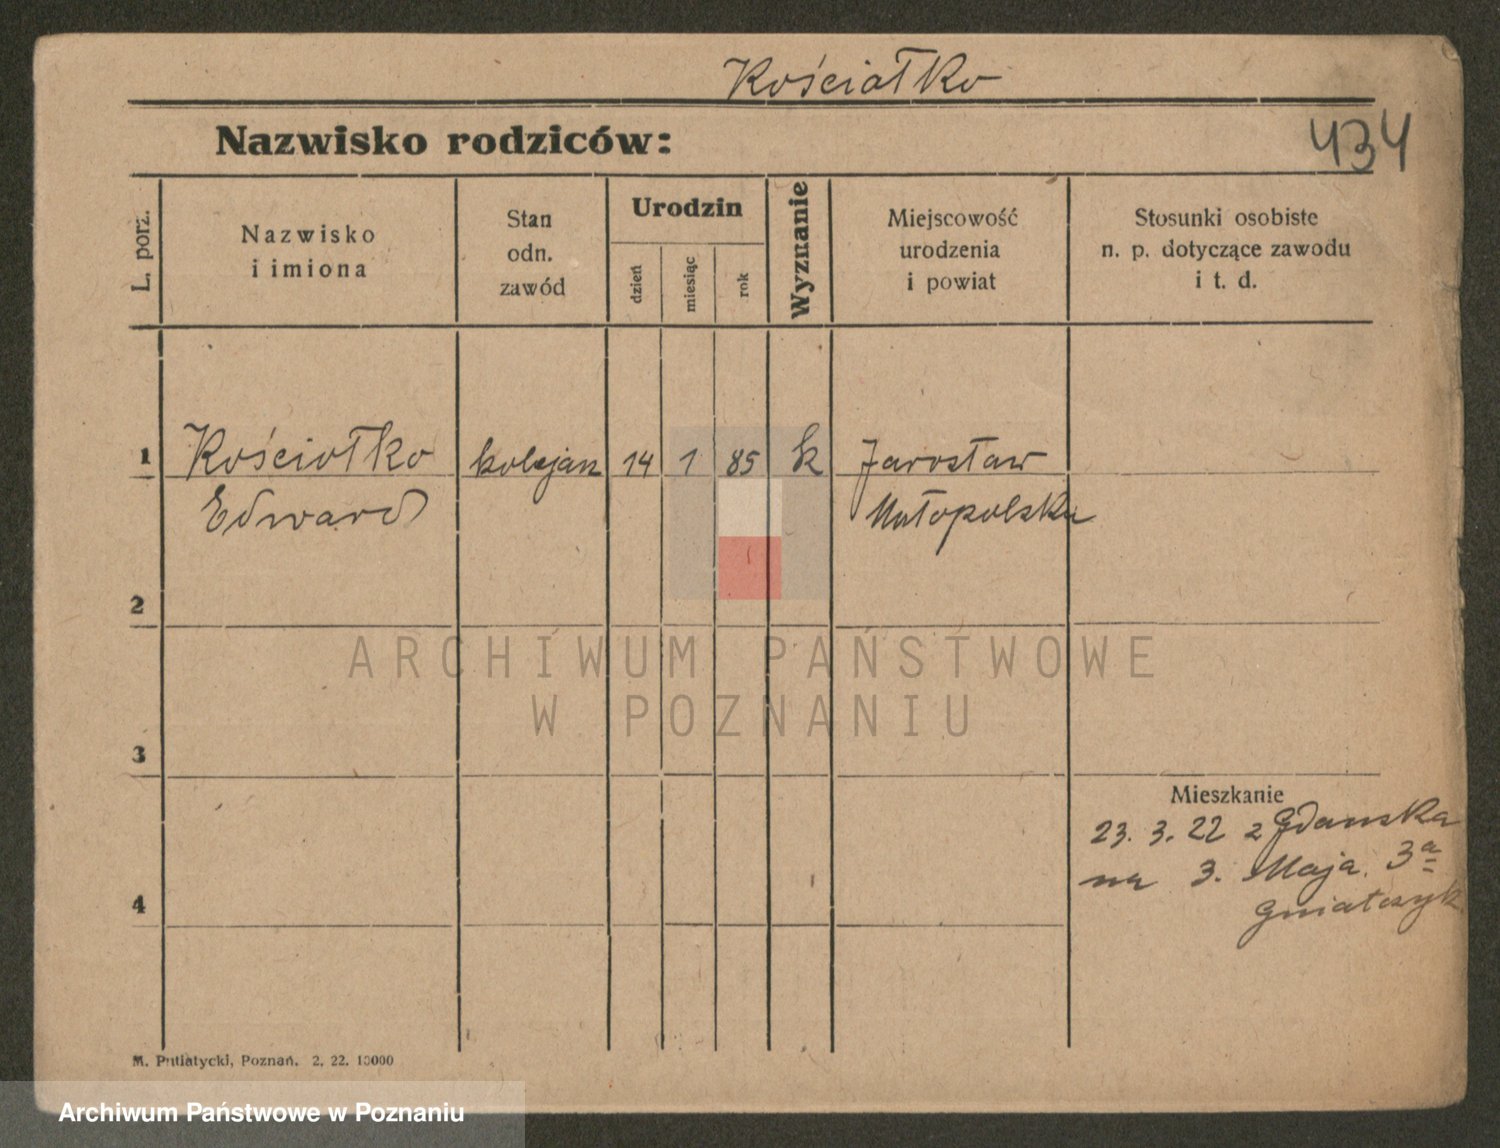 Kościałko
Nazwisko rodziców:
434
L. porz.
Nazwisko
i imiona
Stan
odn.
zawód
Urodzin
dzień
miesiąc
rok
Wyznanie
Miejscowość
urodzenia
i powiat
Stosunki osobiste
n. p. dotyczące zawodu
i t. d.
1 Kościołko kolejarz 14 1 85 k Jarosław
Edward Małopolska
2
3
4
Mieszkanie
23. 3. 22 z Gdańska
na 3. Maja 3a
Gniatczyk
M. Putiatycki, Poznań. 2. 22. 10000
ARCHIWUM PAŃSTWOWE
W POZNANIU
Archiwum Państwowe w Poznaniu